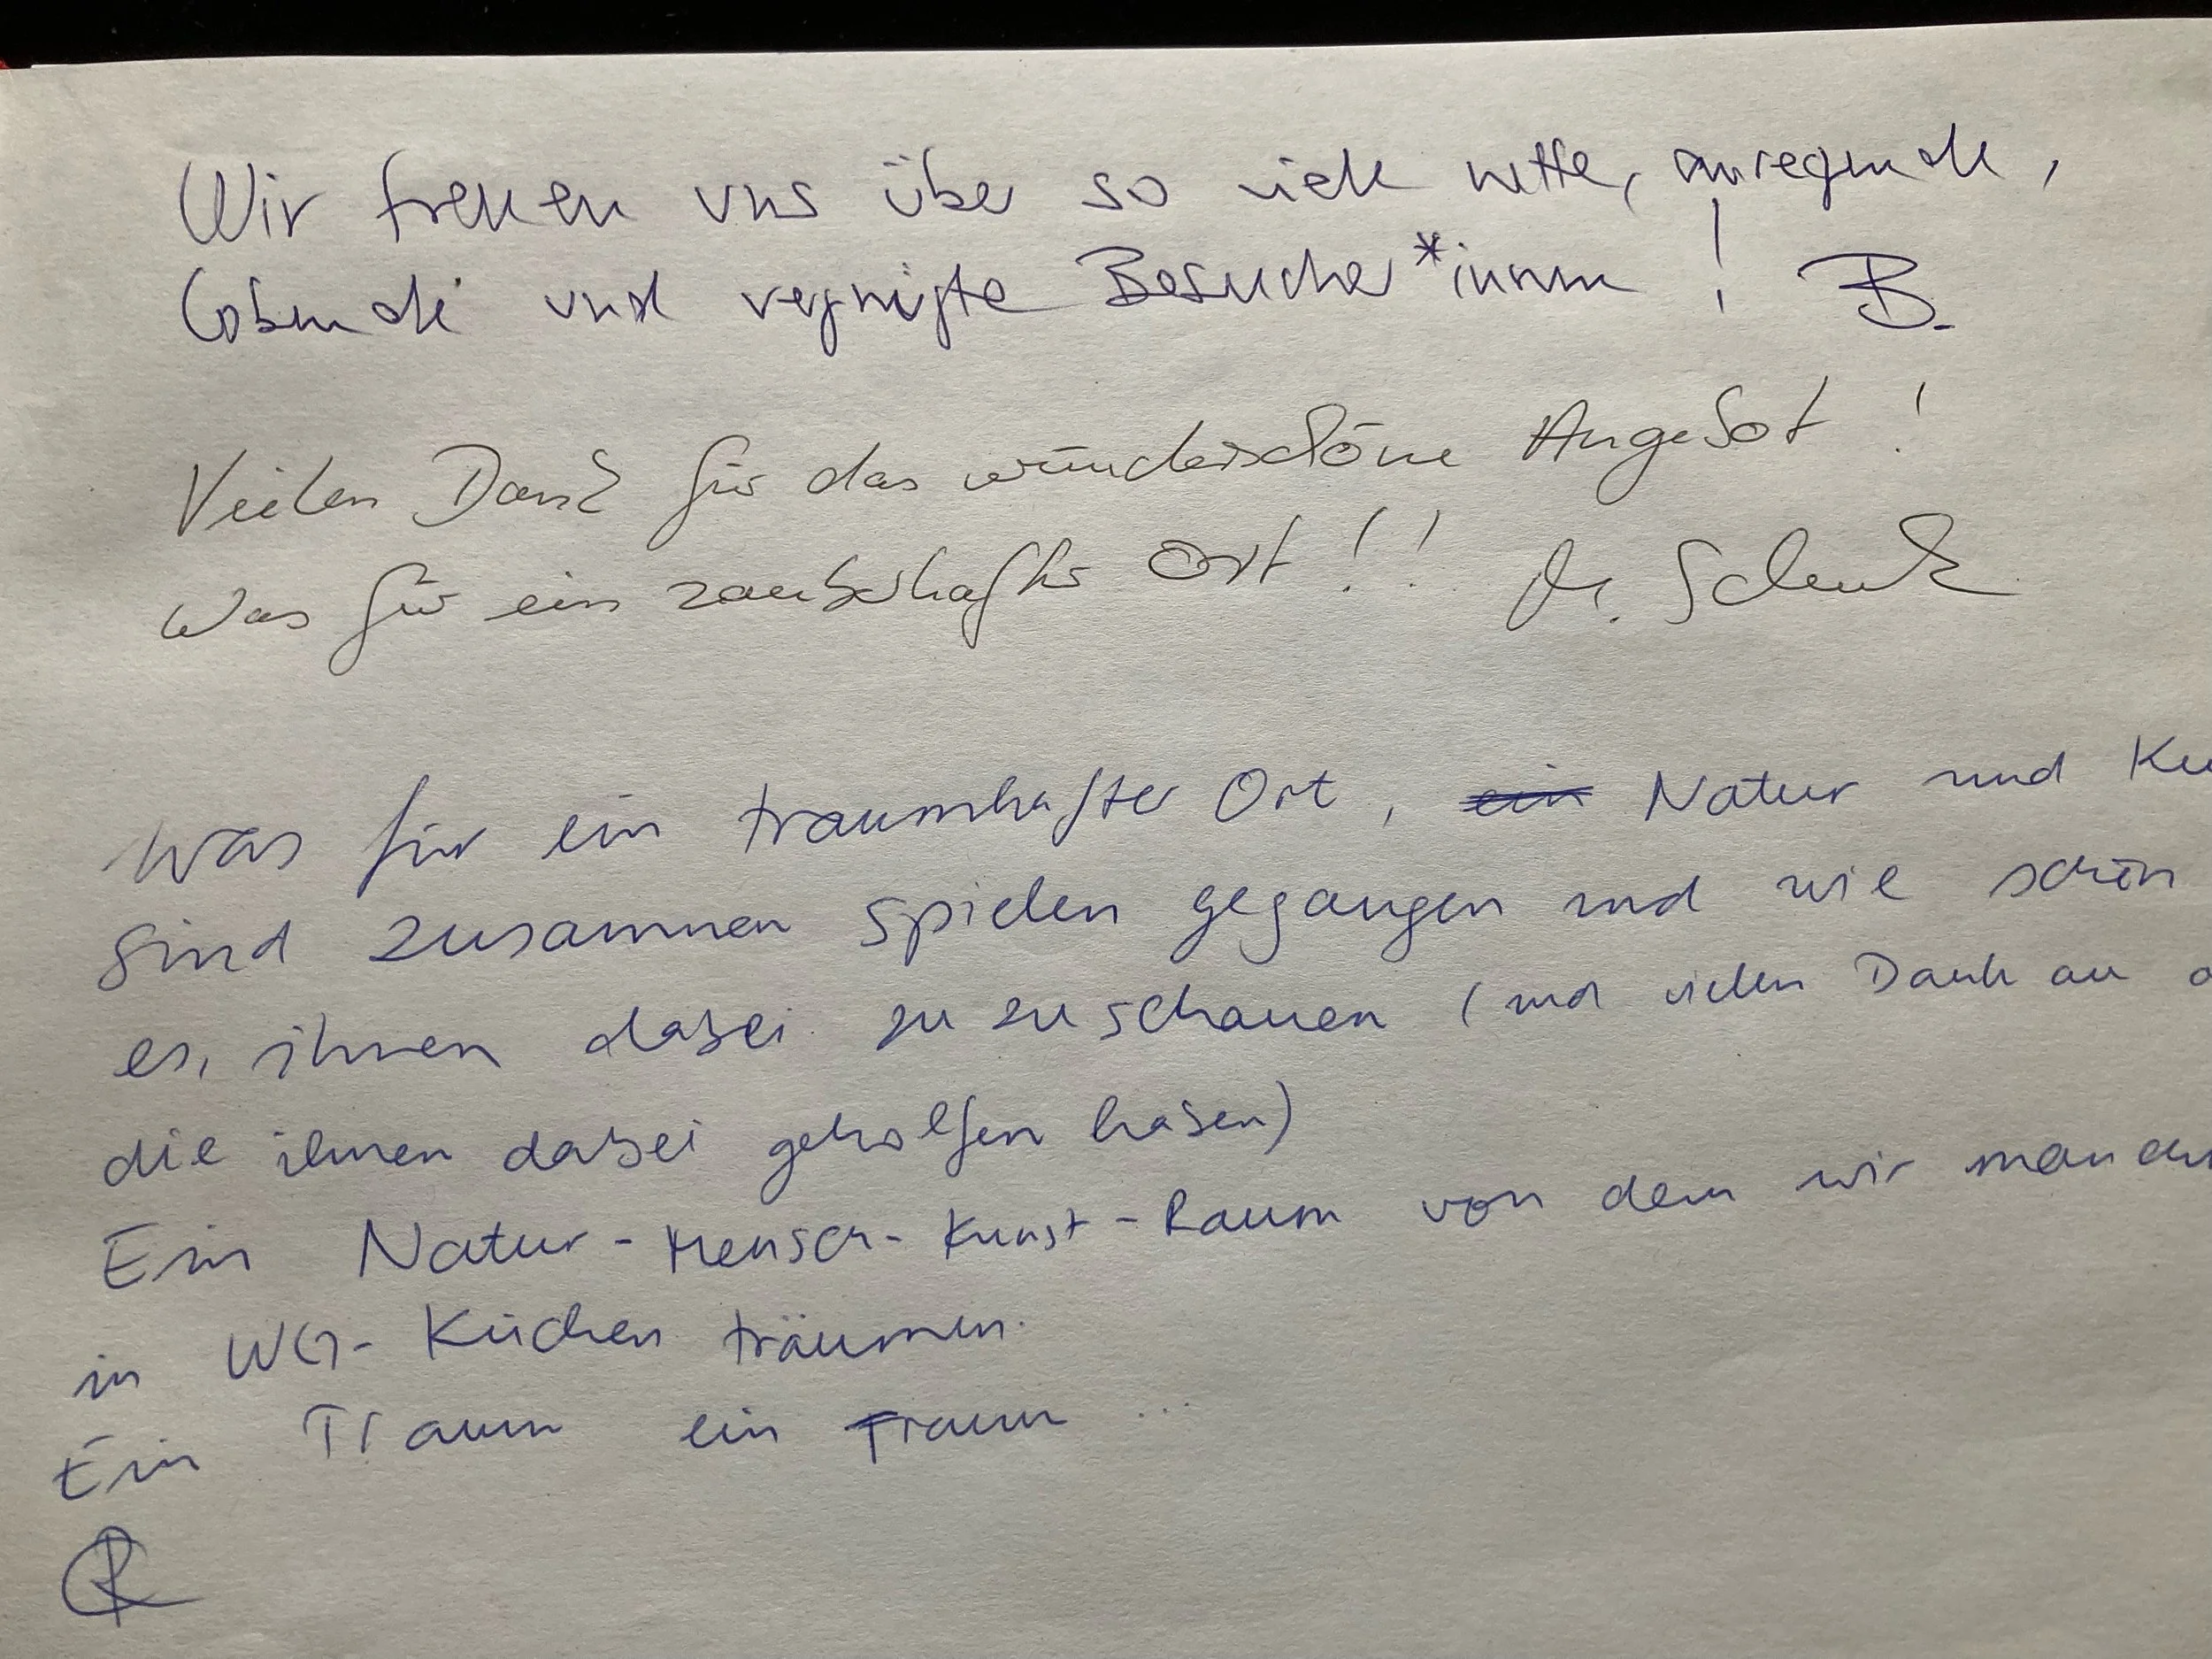 Wir freuen uns über so viele nette, anregende,
lobende und vergnügte Besucher*innen! B.
Vielen Dank für das wunderschöne Angebot!
Was für ein zauberhafter Ort!!
Was für ein traumhafter Ort, ein Natur und Ku
sind zusammen spielen gegangen und wie schön
es, ihnen dabei zu zu schauen (und vielen Dank an
die ihnen dabei geholfen haben)
Ein Natur-Mensch-Kunst-Raum von dem wir
in WG-Küchen träumen.
Ein Traum ein Traum ...